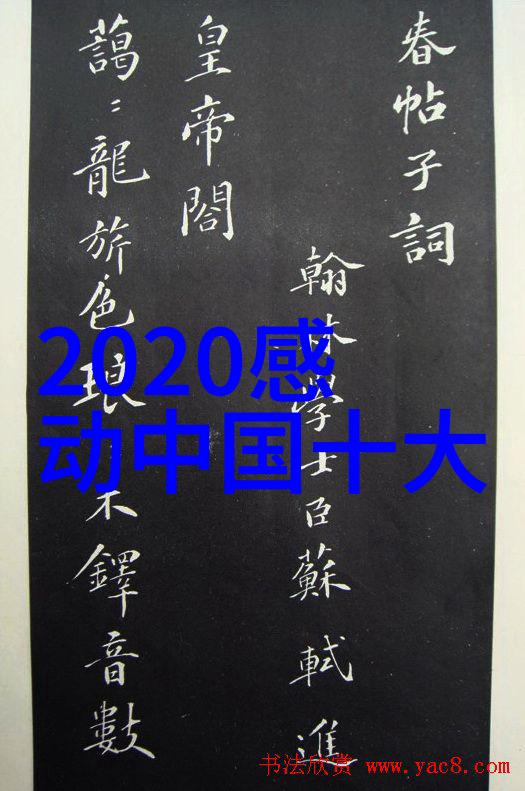 春帖子詞
翰林學士臣蘇軾進
皇帝閤
藹〻龍旂色琅木鐸音數
2020感
动中国十大
书法欣赏 www.yac8.com